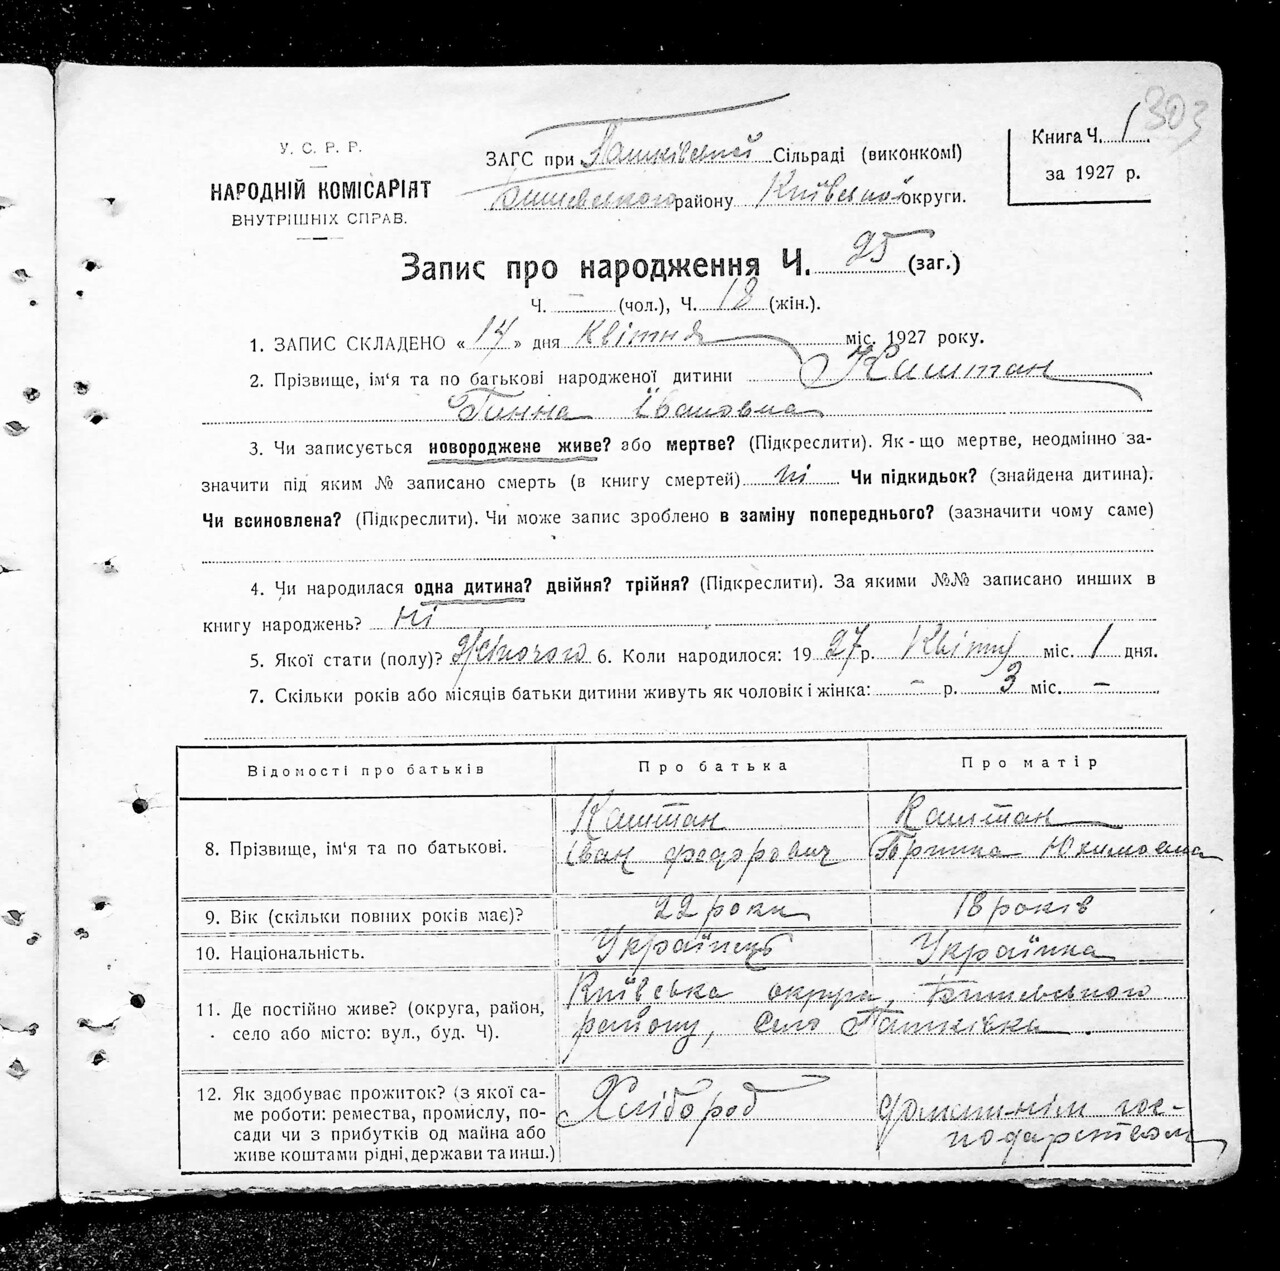 303
У. С. Р. Р.
НАРОДНІЙ КОМІСАРІЯТ
ВНУТРІШНІХ СПРАВ.
ЗАГС при Пашківській Сільраді (виконкомі)
Бишевського району Київської округи.
Книга Ч. 1
за 1927 р.
Запис про народження Ч. 25 (заг.)
Ч. – (чол.), Ч. 18 (жін.).
1. ЗАПИС СКЛАДЕНО « 14 » дня Квітня міс. 1927 року.
2. Прізвище, ім'я та по батькові народженої дитини Каштан
Ганна Івановна
3. Чи записується новороджене живе? або мертве? (Підкреслити). Як-що мертве, неодмінно за-
значити під яким № записано смерть (в книгу смертей) ні Чи підкидьок? (знайдена дитина).
Чи всиновлена? (Підкреслити). Чи може запис зроблено в заміну попереднього? (зазначити чому саме)
4. Чи народилася одна дитина? двійня? трійня? (Підкреслити). За якими №№ записано инших в
книгу народжень? ні
5. Якої стати (полу)? Жіночого 6. Коли народилося: 1927 р. Квітня міс. 1 дня.
7. Скільки років або місяців батьки дитини живуть як чоловік і жінка: – р. 3 міс. –
Відомості про батьків Про батька Про матір
8. Прізвище, ім'я та по батькові. Каштан Іван Федорович Каштан Юхимовна
9. Вік (скільки повних років має)? 22 роки 18 років
10. Національність. Українець Українка
11. Де постійно живе? (округа, район, Київська округа, Бишевського
село або місто: вул., буд. Ч). району, село Пашківка.
12. Як здобуває прожиток? (з якої са-
ме роботи: ремества, промислу, по-
сади чи з прибутків од майна або
живе коштами рідні, держави та инш.)
Хлібороб
домашнім гос-
подарством